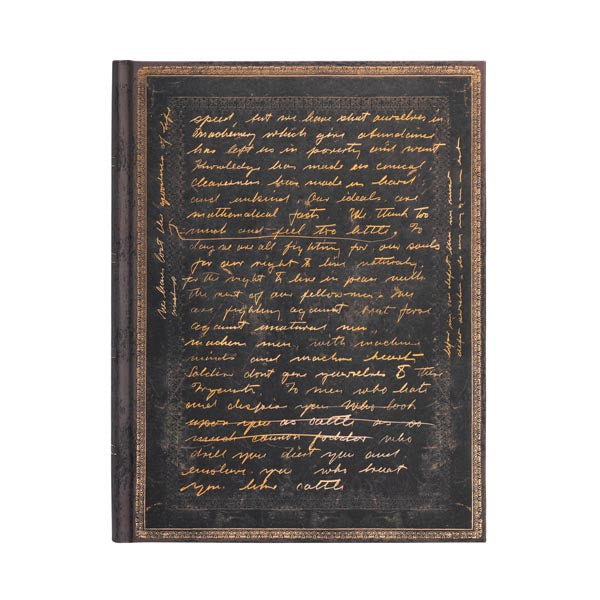 speed, but we have shut ourselves in
machinery which gives abundance
has left us in poverty and want
Knowledge has made us cynical
cleverness has made us hard
and unkind. Our ideals are
mathematical facts. We think too
much and feel too little, To
day we are all fighting for our souls
for our right to live naturaly,
for the right to live in peace midst
the rest of our fellow men. We
are fighting against brut force
against unatural men
machine men, with machine
minds and machine hearts
dont give yourselves to
To men who hate
and despise you who look
upon you as cattle as so
much cannon fodder who
drill you diet you and
enslave you who treat
you like cattle
We have lost the of life